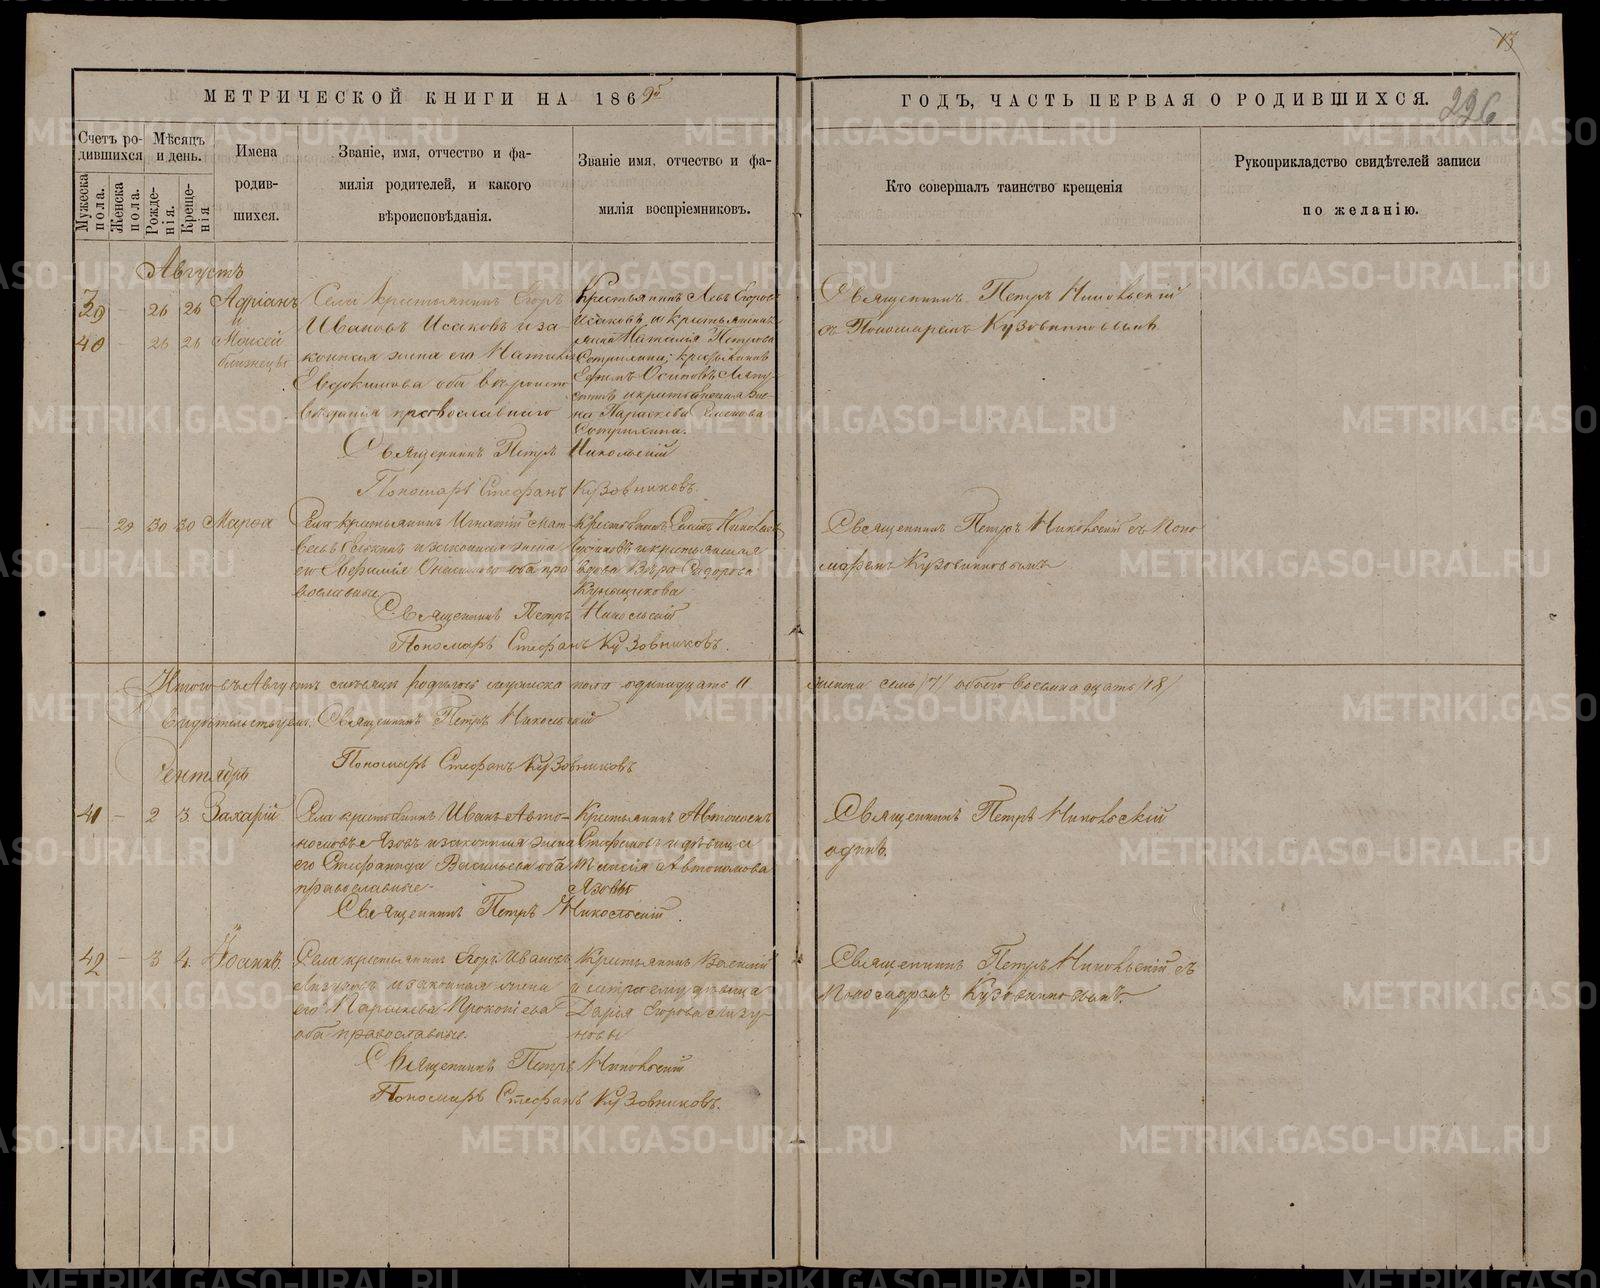 13
МЕТРИЧЕСКОЙ КНИГИ НА 1869й
ГОДЪ, ЧАСТЬ ПЕРВАЯ О РОДИВШИХСЯ.
226
Счетъ родившихся
Мужеска пола.
Женска пола.
Мѣсяцъ и день.
Рожденія.
Крещенія
Имена
родив-
шихся.
Званіе, имя, отчество и фа-
милія родителей, и какого
вѣроисповѣданія.
Званіе имя, отчество и фа-
милія воспріемниковъ.
Кто совершалъ таинство крещенія
Рукоприкладство свидѣтелей записи
по желанію.
Августъ
39 - 26 26 Адріанъ
и
40 - 26 26 Моисей
близнецы
Села крестьянинъ Егоръ
Ивановъ Исаковъ и за-
конная жена его
Евдокимова оба
православнаго
Крестьянинъ Левъ Егоровъ
Исаковъ и крестьянская
Наталія Петрова
крестьянинъ
Ефимъ Осиповъ
и крестьянская же-
на Параскева Семенова
Священникъ Петръ Никольскій
съ Пономаремъ Кузовниковымъ
Священникъ Петръ Никольскій
Пономарь Стефанъ Кузовниковъ.
- 29 30 30 Марѳа
Села крестьянинъ Игнатій Мат-
и законная жена
его оба пра
вославные
Крестьянинъ
и крестьянская
вдова Вѣра Сидорова
Священникъ Петръ Никольскій съ Поно
маремъ Кузовниковымъ
Священникъ Петръ Никольскій
Пономарь Стефанъ Кузовниковъ.
Итого въ Августѣ мѣсяцѣ родилось мужска пола одинадцать 11
женска семь /7/ обоего восемнадцать /18/
Свидѣтельствуемъ: Священникъ Петръ Никольскій
Пономарь Стефанъ Кузовниковъ
Сентябрь
41 - 2 3 Захарій
Села крестьянинъ Иванъ Авто-
номовъ Язовъ и законная жена
его Стефанида Васильева оба
православные.
Крестьянинъ Автономъ
Стефановъ и дѣвица
Таисія Автономова
Язовы
Священникъ Петръ Никольскій
одинъ.
Священникъ Петръ Никольскій.
42 - 3 4. Іоаннъ.
Села крестьянинъ Егоръ Ивановъ
и законная жена
его Параскева Прокопіева
оба православные.
Крестьянинъ Василій
и сестра ему дѣвица
Дарья Егорова
новы
Священникъ Петръ Никольскій съ
Пономаремъ Кузовниковымъ.
Священникъ Петръ Никольскій
Пономарь Стефанъ Кузовниковъ.
METRIKI.GASO-URAL.RU